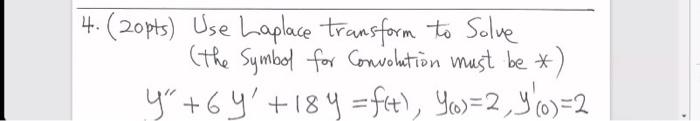 4. (20pts) Use Laplace transform to Solve
(the Symbol for Convolution must be *)
y'' + 6 y' + 18 y = f(t), y(0)=2, y'(0)=2